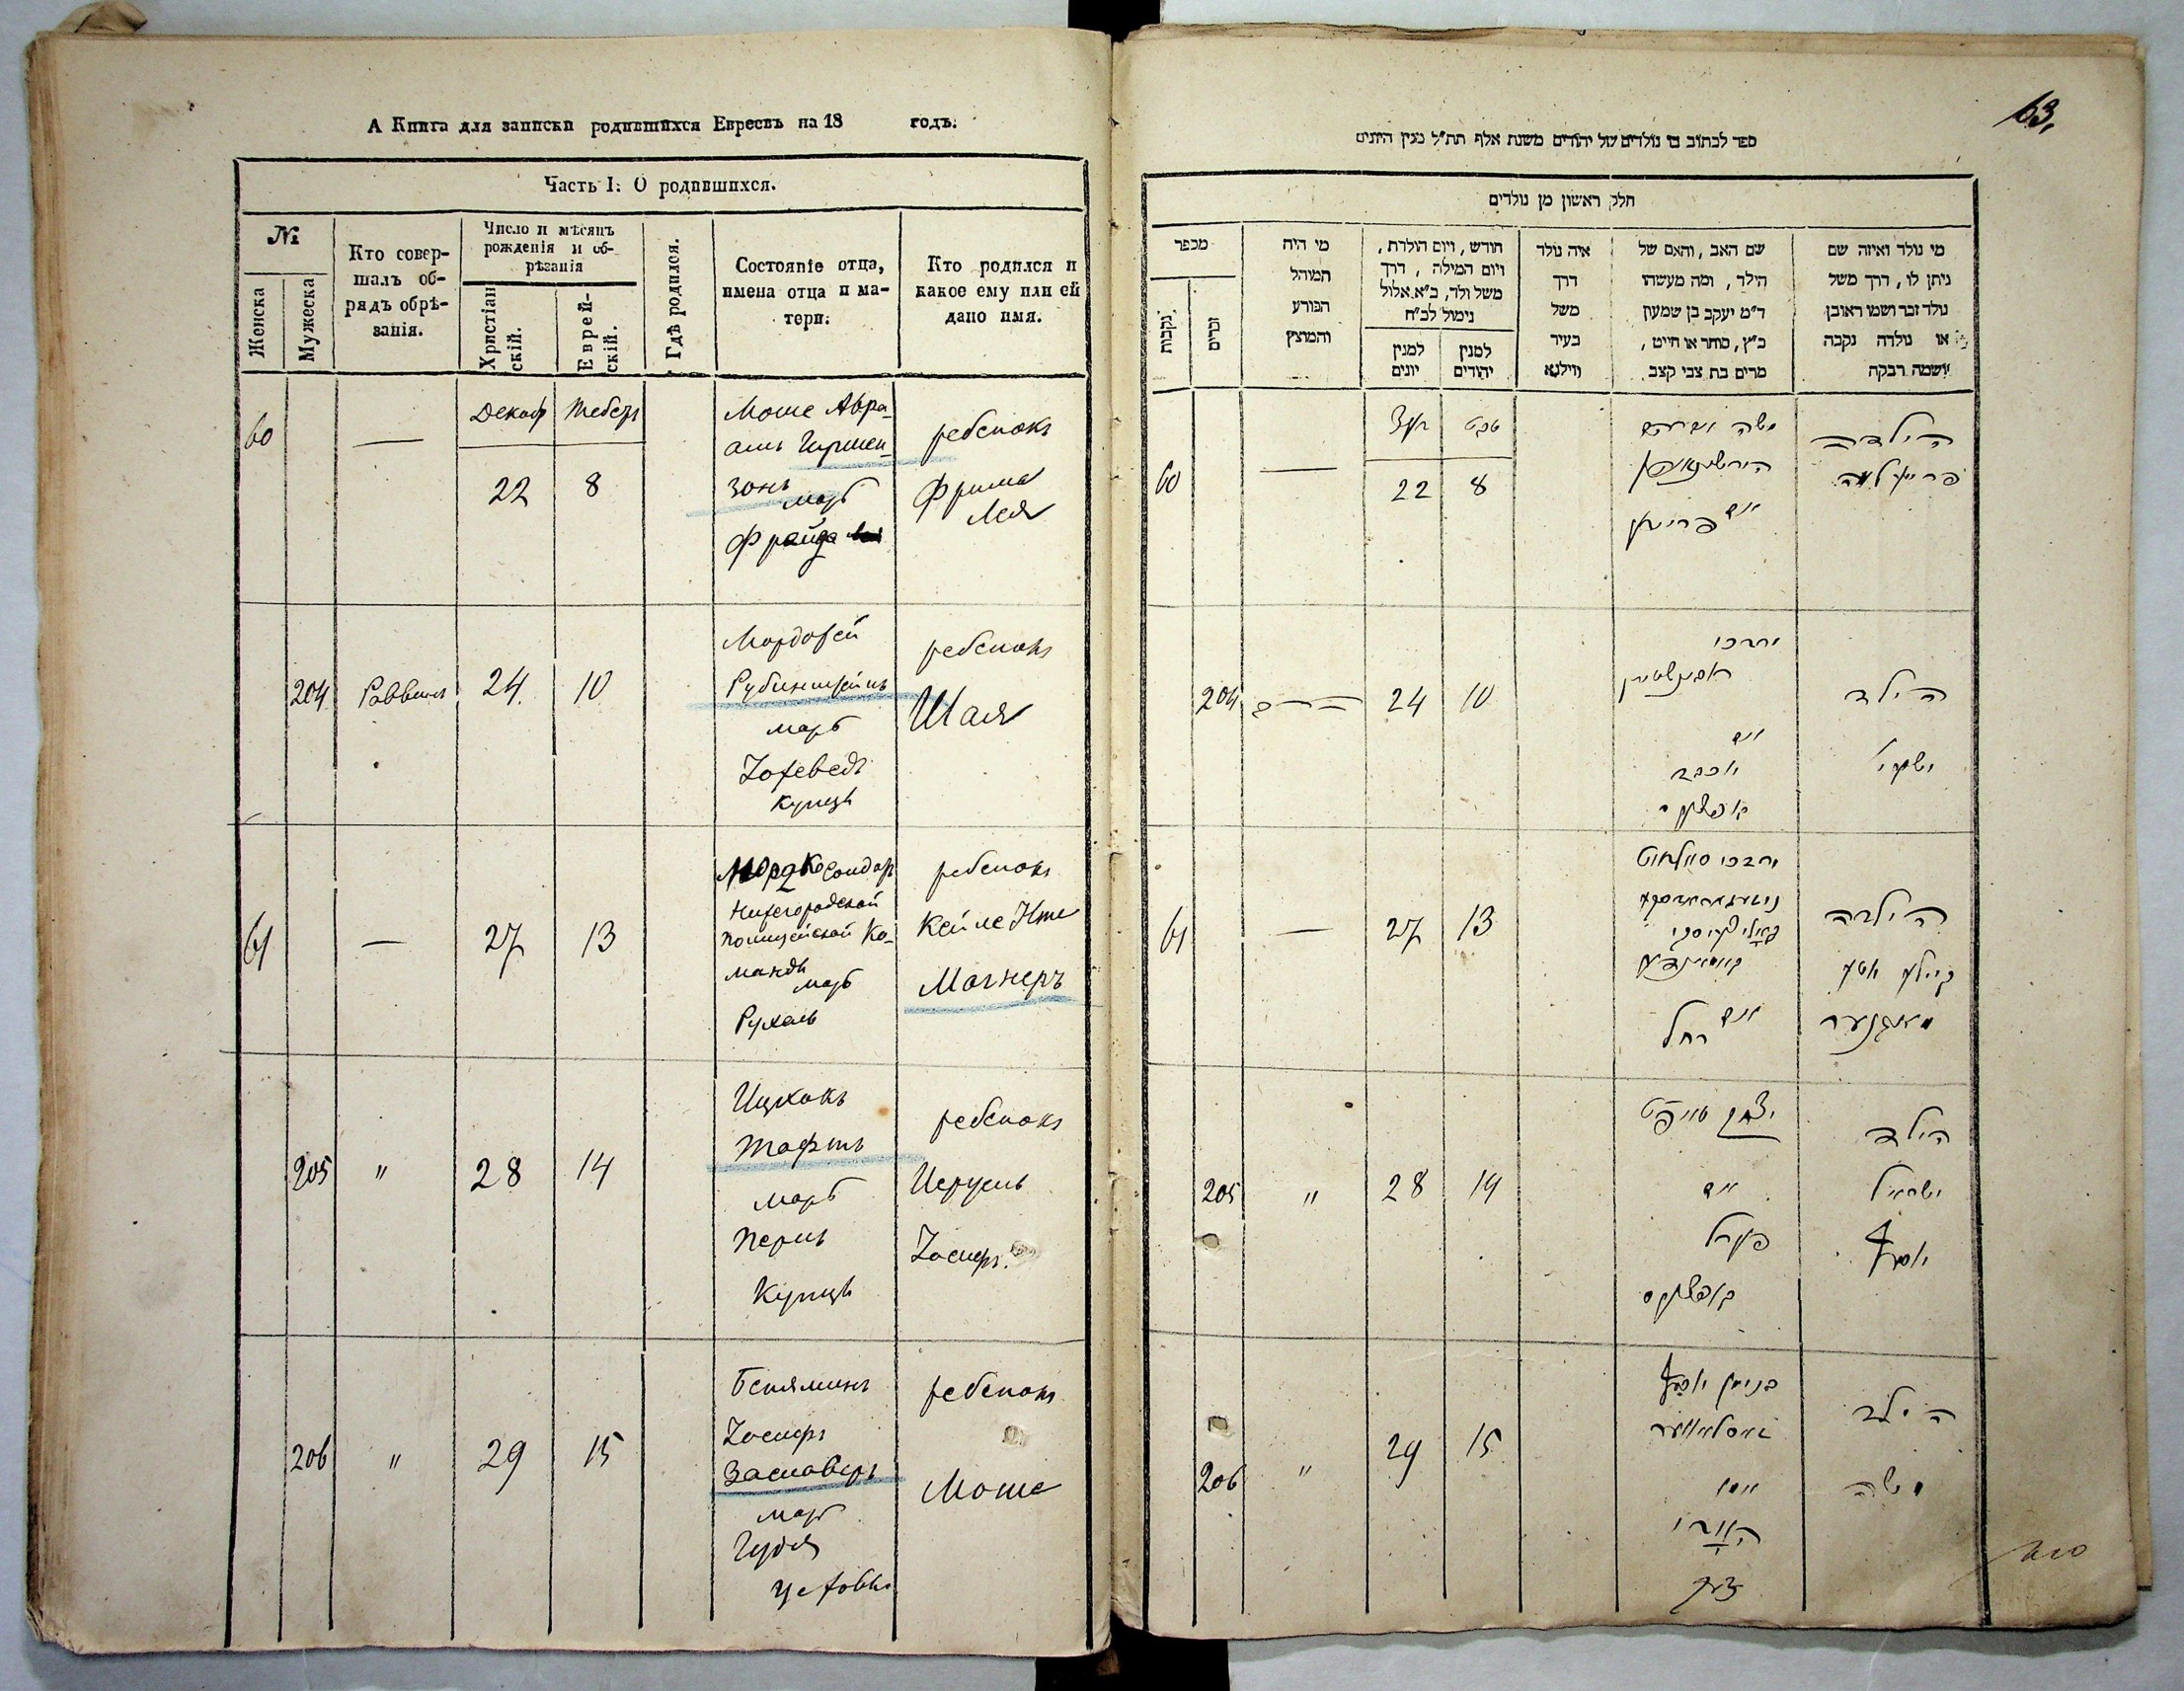 А Книга для записки родившихся Евреевъ на 18 годъ.
Часть I: О родившихся.
№
Женска
Мужеска
Кто совер-
шалъ об-
рядъ обрѣ-
занія.
Число и мѣсяцъ
рожденія и об-
рѣзанія
Христіан
скій.
Еврей-
скій.
Гдѣ родился.
Состояніе отца,
имена отца и ма-
тери.
Кто родился и
какое ему или ей
дано имя.
60
—
Декаб
Тебетъ
22
8
Моше Авра-
амъ Гиршен-
зонъ
мать
Фрайда
ребенокъ
Фрима
Лея
204
Раввинъ
24
10
Мордохей
Рубинштейнъ
мать
Іохеведъ
купцы
ребенокъ
Шая
61
—
27
13
Мордко Солдатъ
Нижегородской
полицейской Ко-
манды
мать
Рухель
ребенокъ
Кейле Ите
Магнеръ
205
"
28
14
Ицхокъ
Тафтъ
мать
Перль
Купцы
ребенокъ
Исруель
Іосифъ
206
"
29
15
Беньяминъ
Іосифъ
Заславеръ
мать
Гудя
ребенокъ
Моше
63,
ספר לכתוב בו נולדים של יהודים משנת אלף תת"ל מנין היונים
חלק ראשון מן נולדים
מכפר
נקבות
זכרים
מי היה
המוהל
הפורע
והמוצץ
חודש, ויום הולדת,
ויום המילה, דרך
משל ולד, כ"א אלול
נימול לכ"ח
למנין
יונים
למנין
יהודים
איה נולד
דרך
משל
בעיר
ווילנא
שם האב, והאם של
הילד, ומה מעשהו
ד"מ יעקב בן שמעון
כ"ץ, סוחר או חייט,
מרים בת צבי קצב
מי נולד ואיזה שם
ניתן לו, דרך משל
נולד זכר ושמו ראובן
או נולדה נקבה
ושמה רבקה
60
—
דעק
טבת
22
8
משה אברהם
הירשענזאהן
אם פריידא
הילדה
פרומא לאה
204
24
10
מרדכי
רובינשטיין
אם
יוכבד
הילד
ישעיה
61
—
27
13
מרדכי סאלדאט
אם רחל
הילדה
קיילע איטע
מאגנער
205
"
28
14
יצחק טאפט
אם
פערל
הילד
ישראל
יוסף
206
"
29
15
בנימין יוסף
זאסלאווער
אם
הילד
משה